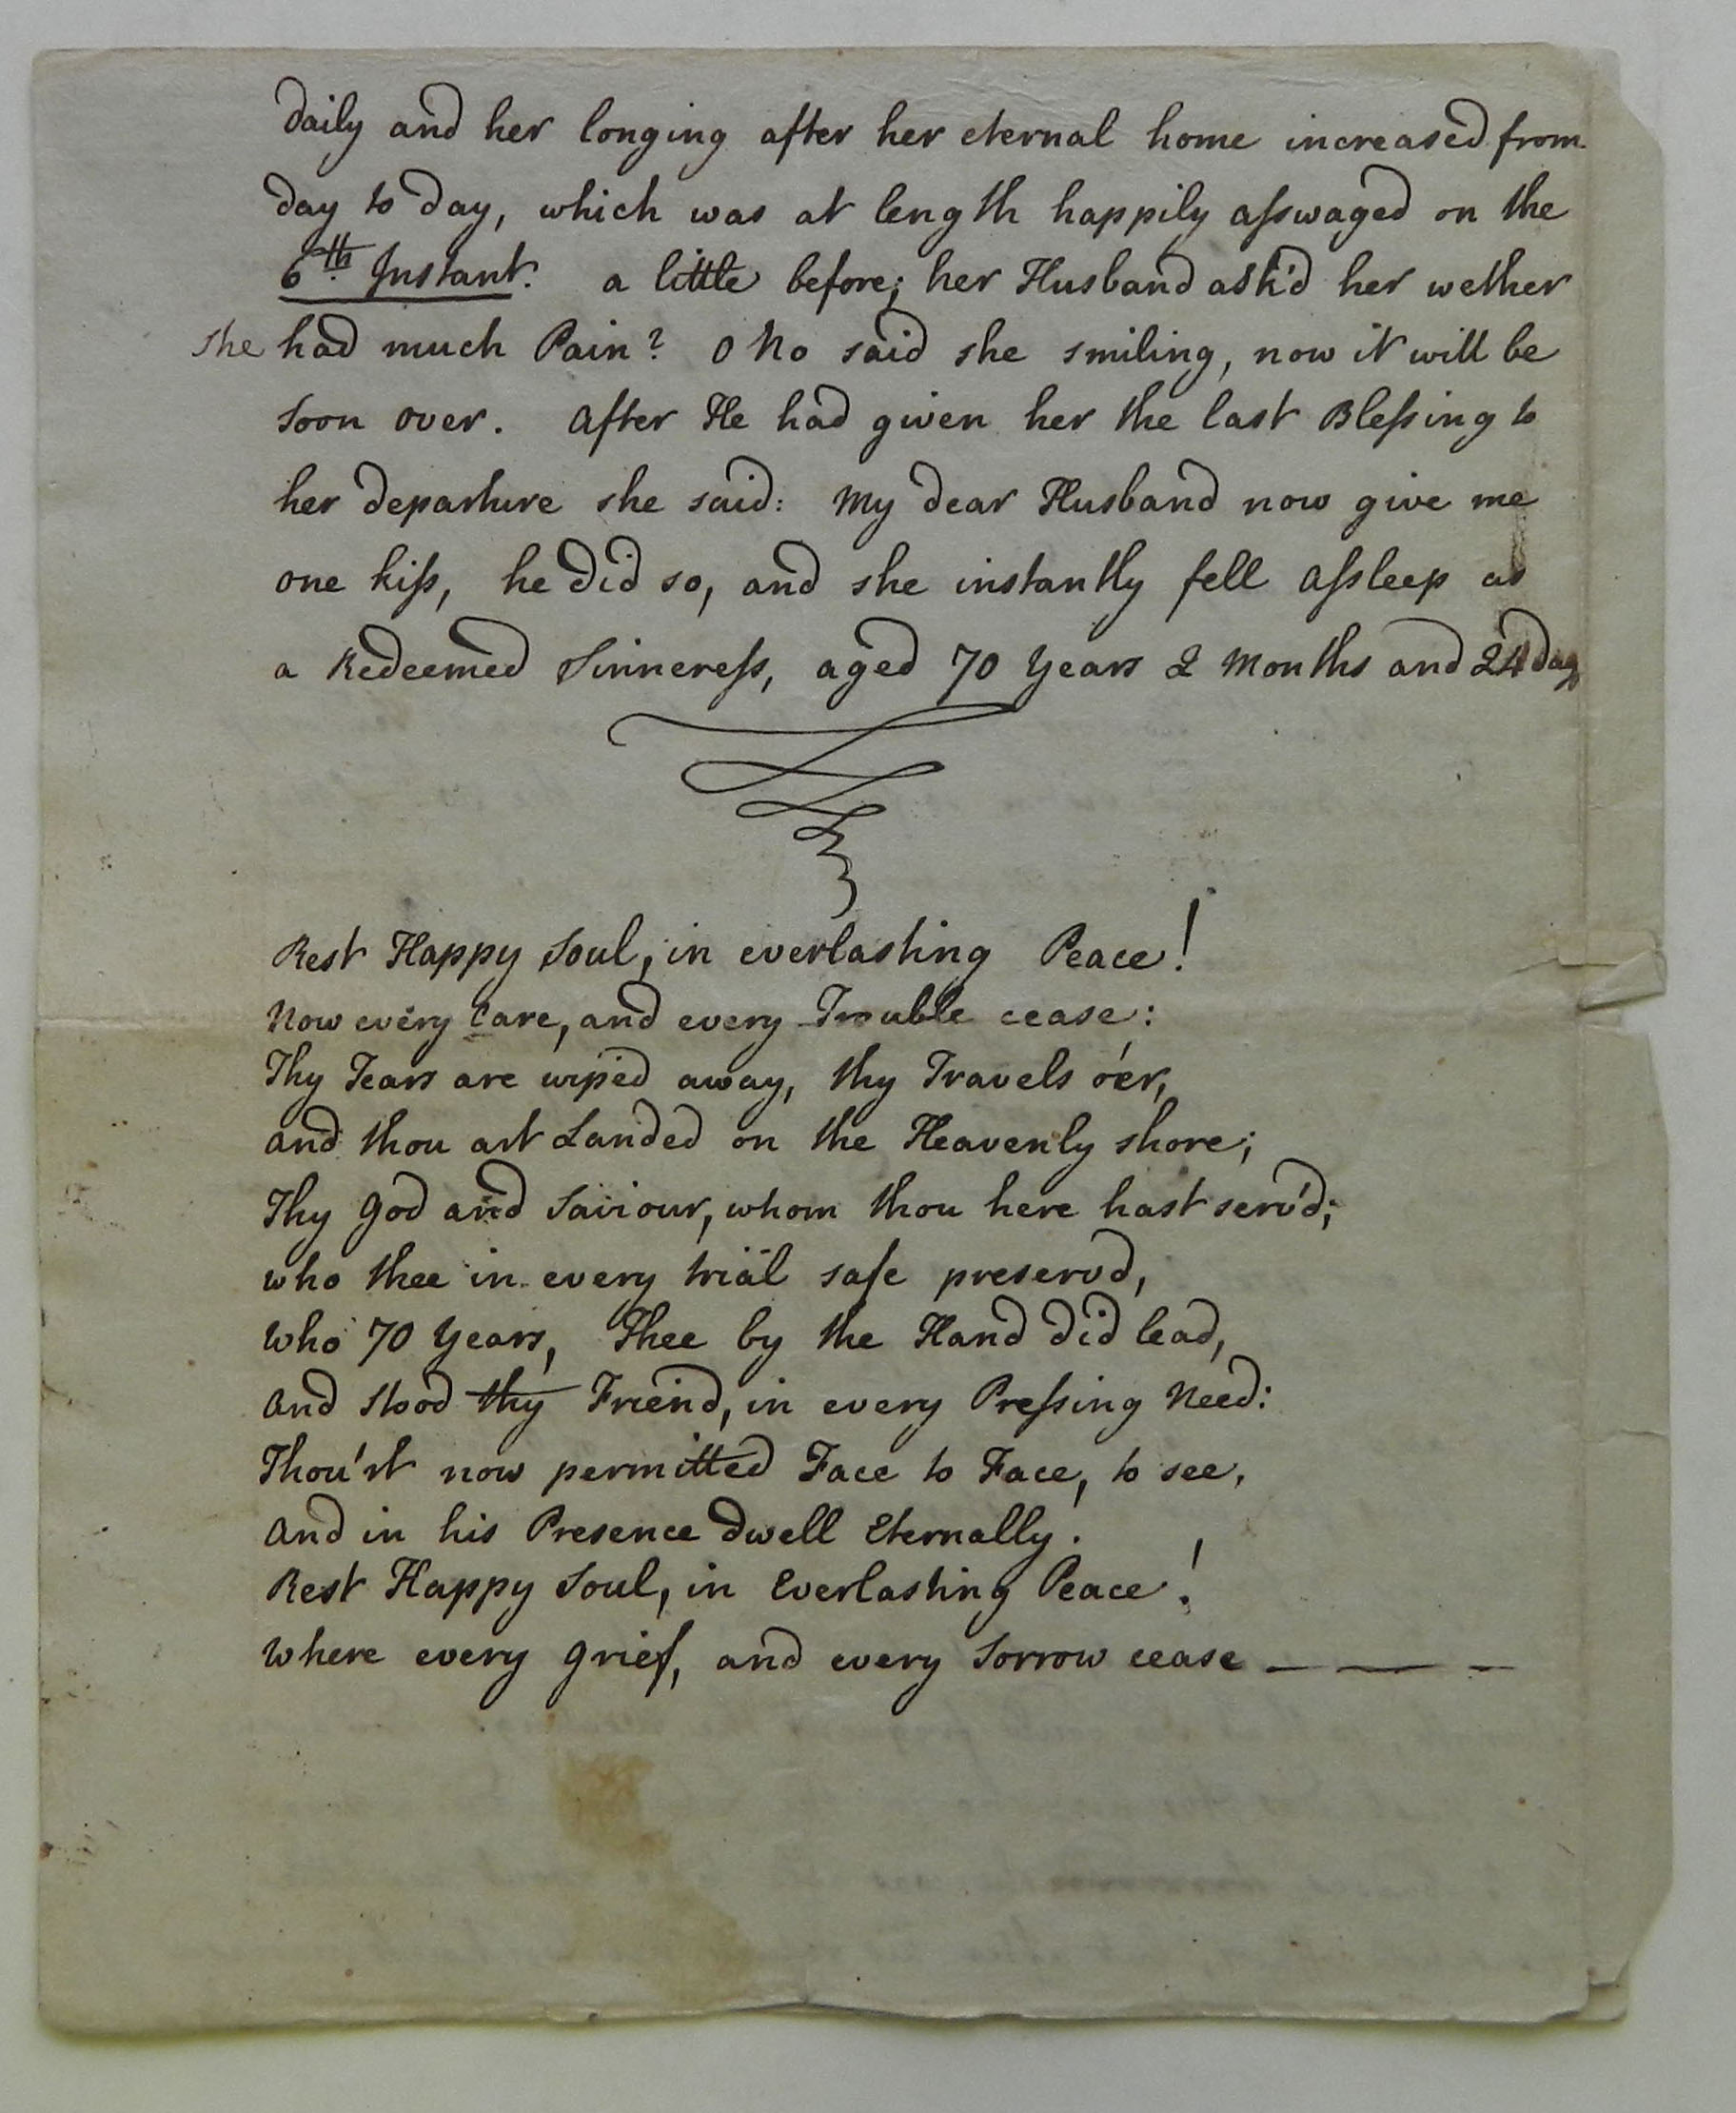 daily and her longing after her eternal home increased from
day to day, which was at length happily aſswaged on the
6th. Instant. a little before; her Husband ask'd her wether
she had much Pain? O No said she smiling, now it will be
soon over. After He had given her the last Bleſsing to
her departure she said: My dear Husband now give me
one kiſs, he did so, and she instantly fell aſsleep as
a Redeemed Sinnereſs, aged 70 Years 2 Months and 24 days
Rest Happy Soul, in everlasting Peace!
Now every Care, and every Trouble cease:
Thy Tears are wiped away, thy Travels o'er,
and thou art Landed on the Heavenly shore;
Thy God and Saviour, whom thou here hast serv'd;
who thee in every trial safe preserv'd,
Who 70 Years, Thee by the Hand did lead,
And stood thy Friend, in every Preſsing Need:
Thou'rt now permitted Face to Face, to see,
And in his Presence dwell Eternally.
Rest Happy Soul, in Everlasting Peace!
Where every grief, and every Sorrow cease — — —